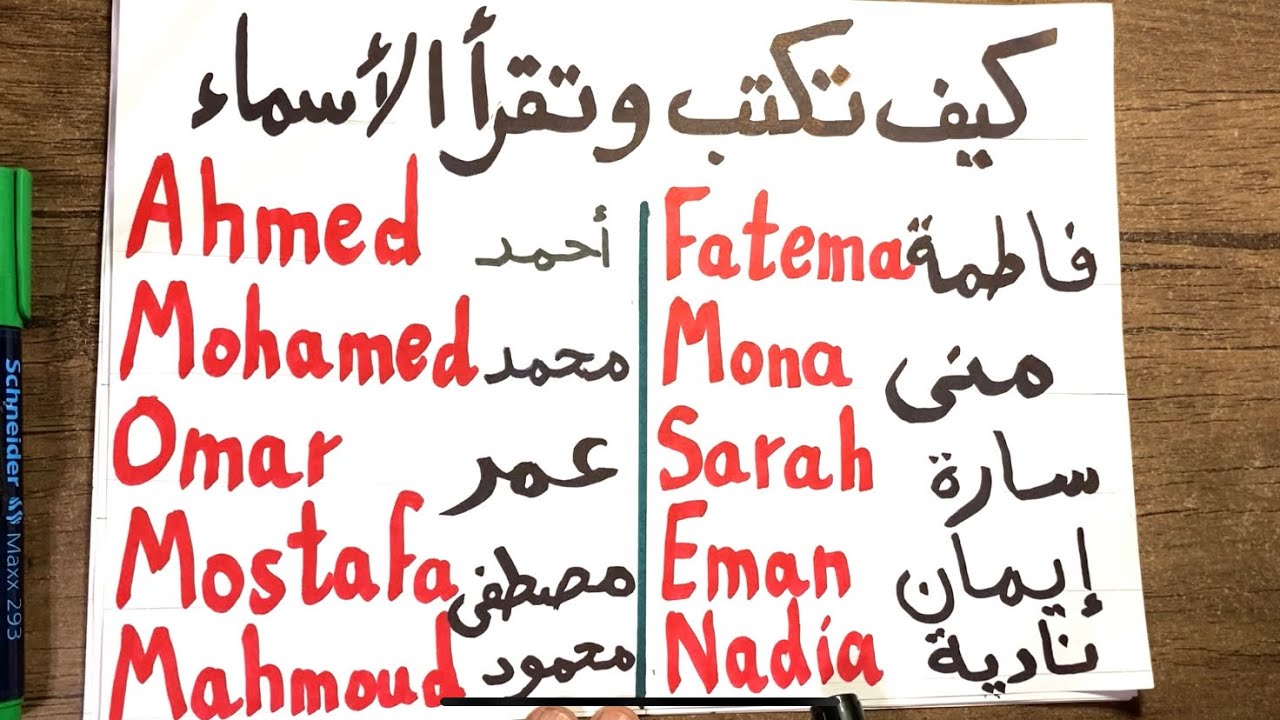 كيف تكتب وتقرأ الأسماء
Ahmed أحمد
Mohamed محمد
Omar عمر
Mostafa مصطفى
Mahmoud محمود
Fatema فاطمة
Mona منى
Sarah سارة
Eman إيمان
Nadia نادية
Schneider Maxx 293